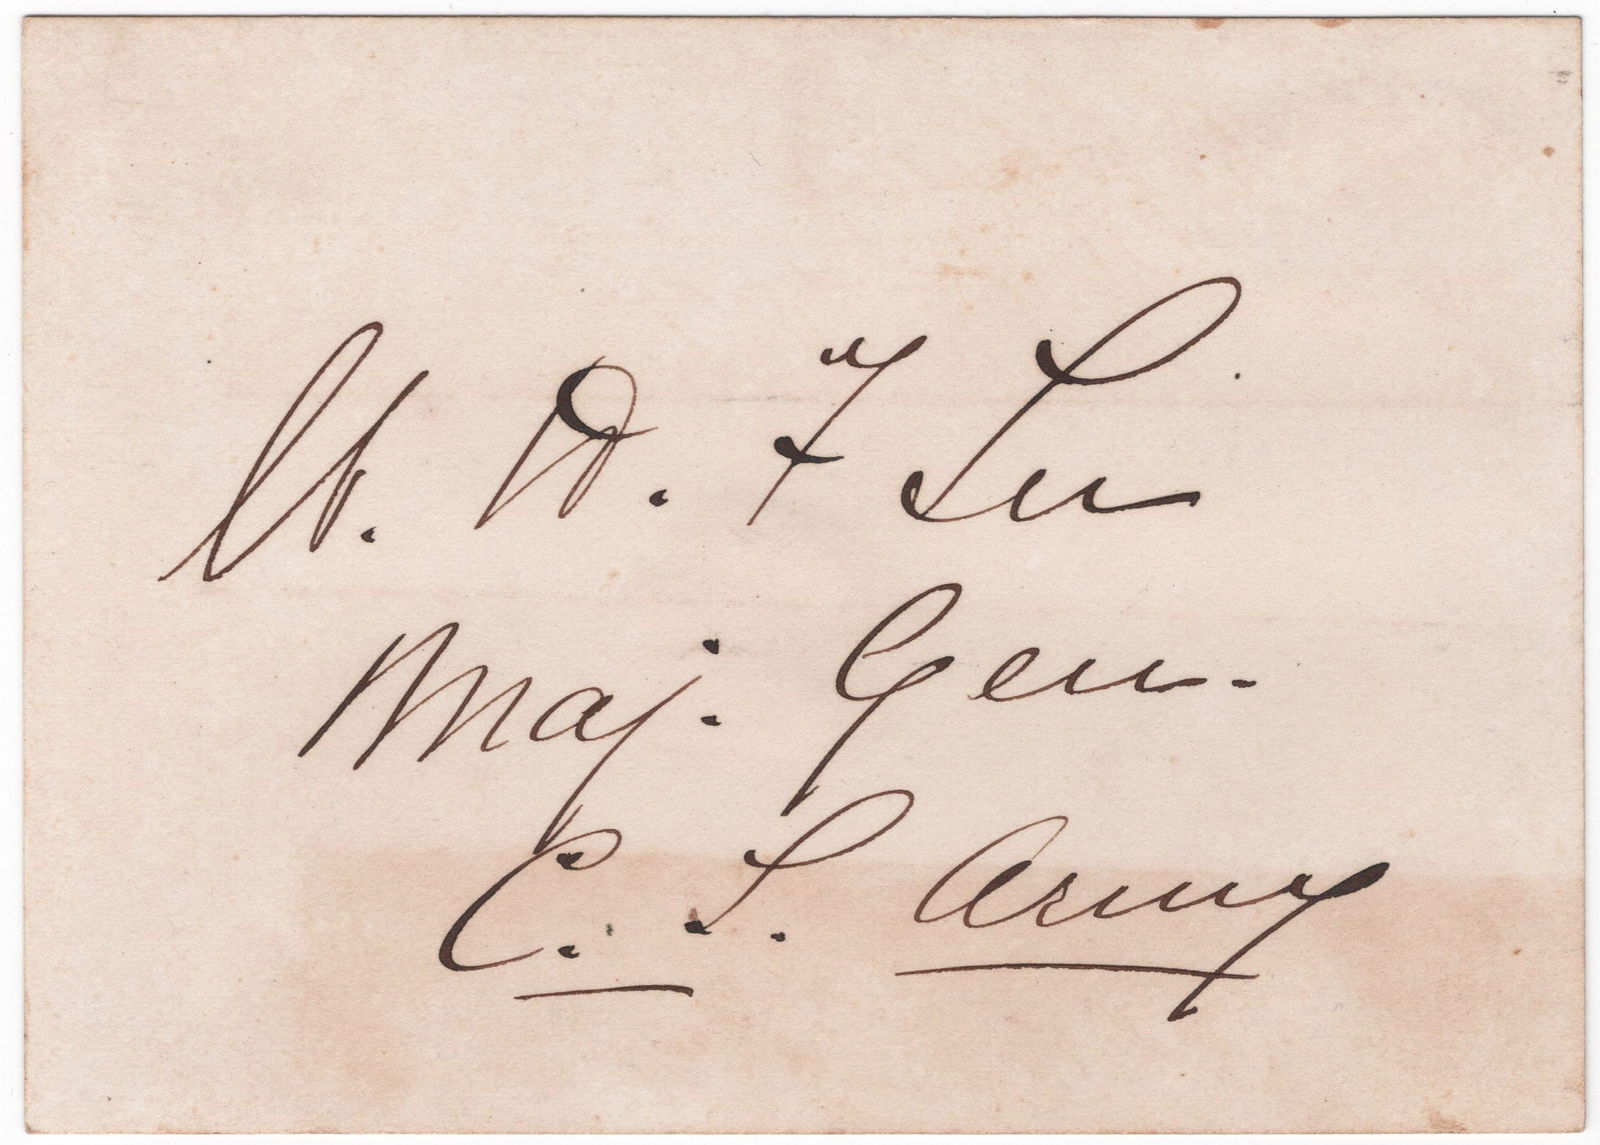 W. H. F Lee
Maj. Gen.
C. S. Army